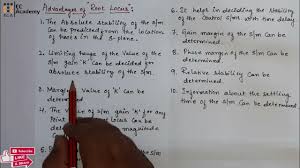 EC Academy
Advantages of Root Locus:
1. The Absolute stability of the s/m
can be predicted from the location
of roots in the s-plane.
2. Limiting range of the value of the
s/m gain 'K' can be decided for
absolute stability of the s/m.
3. Marginal value of 'K' can be
determined.
4. The value of s/m gain 'K' for any
point
locus can be
determined
magnitude
5.
6. It helps in deciding the stability
of the control s/m with time
delay.
7. Gain margin of the s/m can be
determined.
8. Phase margin of the s/m can
be determined
9. Relative stability can be
determined.
10. Information about the settling
time of the s/m can be
determined.
LIKE